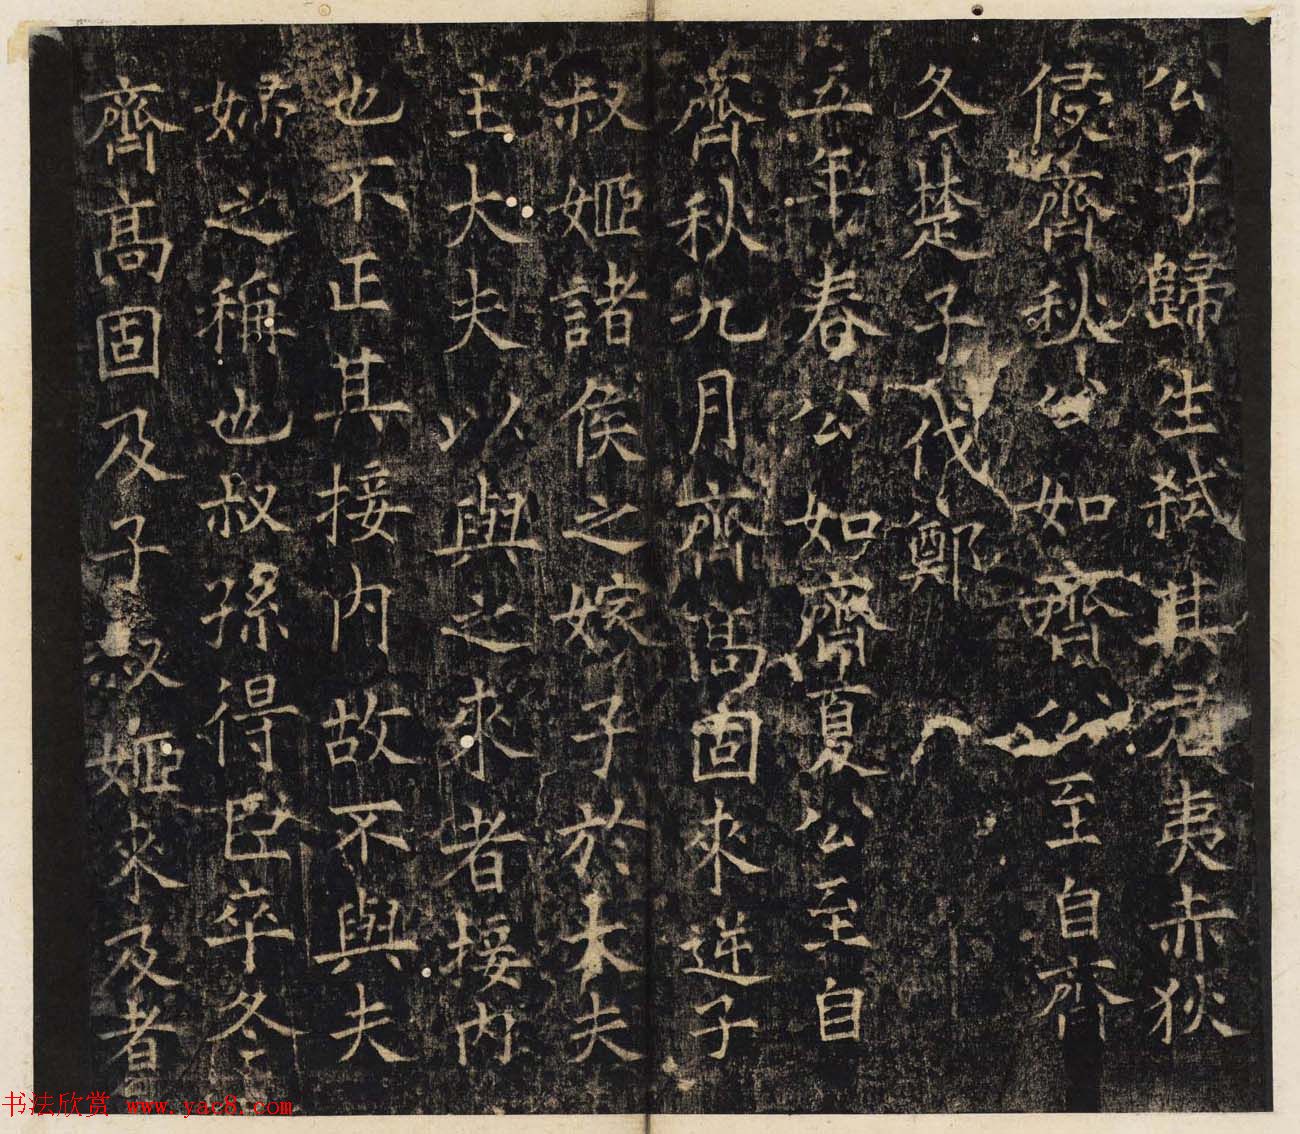 公子歸生弑其君夷赤狄
侵齊秋公如齊公至自齊
冬楚子伐鄭
五年春公如齊夏公至自
齊秋九月齊高固來逆子
叔姬諸侯之嫁子於大夫
主大夫以與之來者接內
也不正其接內故不與夫
婦之稱也叔孫得臣卒冬
齊高固及子叔姬來及者
书法欣赏 www.yac8.com